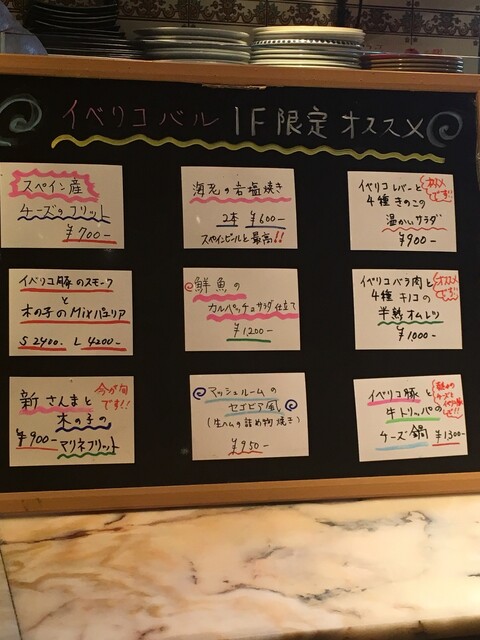 イベリコバル 1F限定オススメ
スペイン産
チーズのフリット
¥700-
海老の岩塩焼き
2本 ¥600-
スペインビールと最高!!
イベリコレバーと
4種きのこの
温かいサラダ
¥900-
オススメ
です!!
イベリコ豚のスモーク
と
木の子のMixパエリア
S 2400. L 4200-
鮮魚の
カルパッチョサラダ仕立て
¥1,200-
イベリコバラ肉と
4種キノコの
半熟オムレツ
¥1000-
オススメ
新さんまと
木の子の
¥900- マリネフリット
今が旬
です!!
マッシュルームの
セゴビア風
(生ハムの詰め物焼き)
¥950-
イベリコ豚と
牛トリッパの
チーズ鍋 ¥1,300-